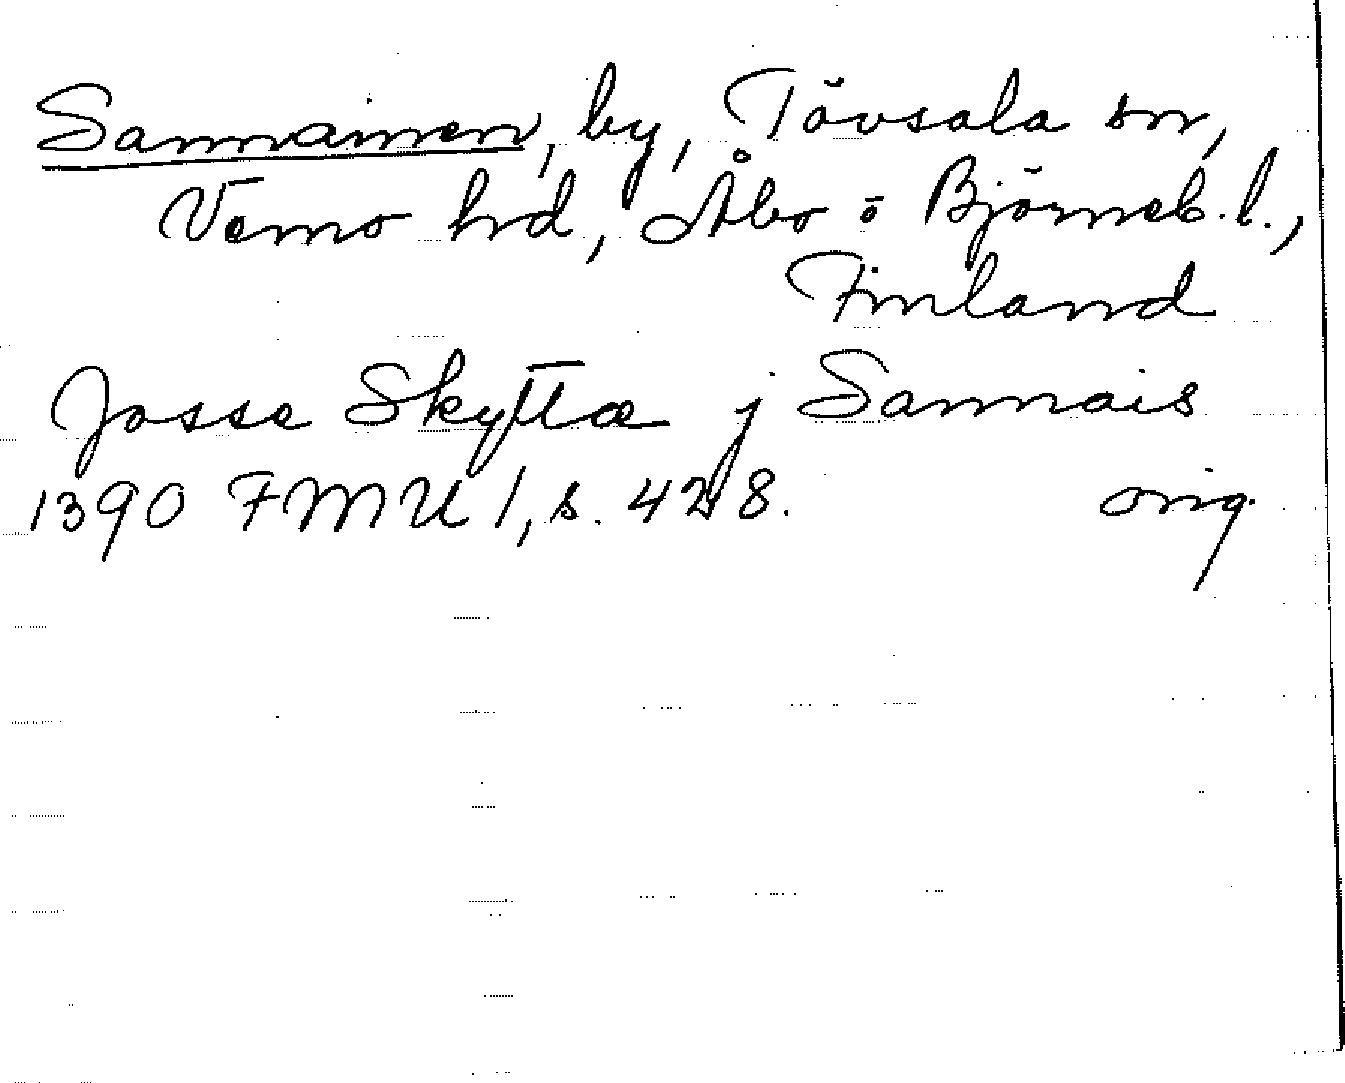 Sannainen, by, Tövsala sn,
Vemo hd, Åbo o Björneb. l.,
Finland
Josse Skyttæ j Sannais
1390 FMU 1, s. 428. orig